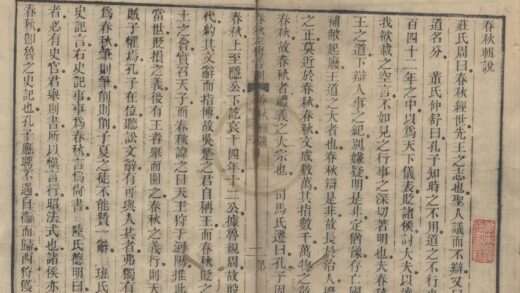 春秋輯說
莊氏周曰春秋經世先王之志也聖人議而不辯又曰
道名分 董氏仲舒曰孔子知時之不用道之不行
百四十二年之中以爲天下儀表貶諸侯討大夫以
我欲載之空言不如見之行事之深切著明也夫春
王之道下辯人事之紀別嫌疑明是非定猶豫存亡
補敝起廢王道之大者也春秋辯是非故長於治人
之正莫近於春秋春秋文成數萬其指數千萬物之
秋故春秋者禮義之大宗也 司馬氏遷曰孔子因
春秋上至隱公下訖哀十四年十二公據魯親周故
代約其文辭而指博故吳楚之君自稱王而春秋貶
土之會實召天子而春秋諱之曰天王狩于河陽推此
當世貶損之義後有王者舉而開之春秋之義行則天
賊子懼焉孔子在位聽訟文辭有可與人共者弗獨有
爲春秋筆則筆削則削子夏之徒不能贊一辭 班氏
史記言右史記事事爲春秋言爲尚書 陸氏德明曰
者必有史官君舉則書所以慎言行昭法式也諸侯亦
春秋卽魯之史記也孔子應聘不遇自衞而歸西狩獲